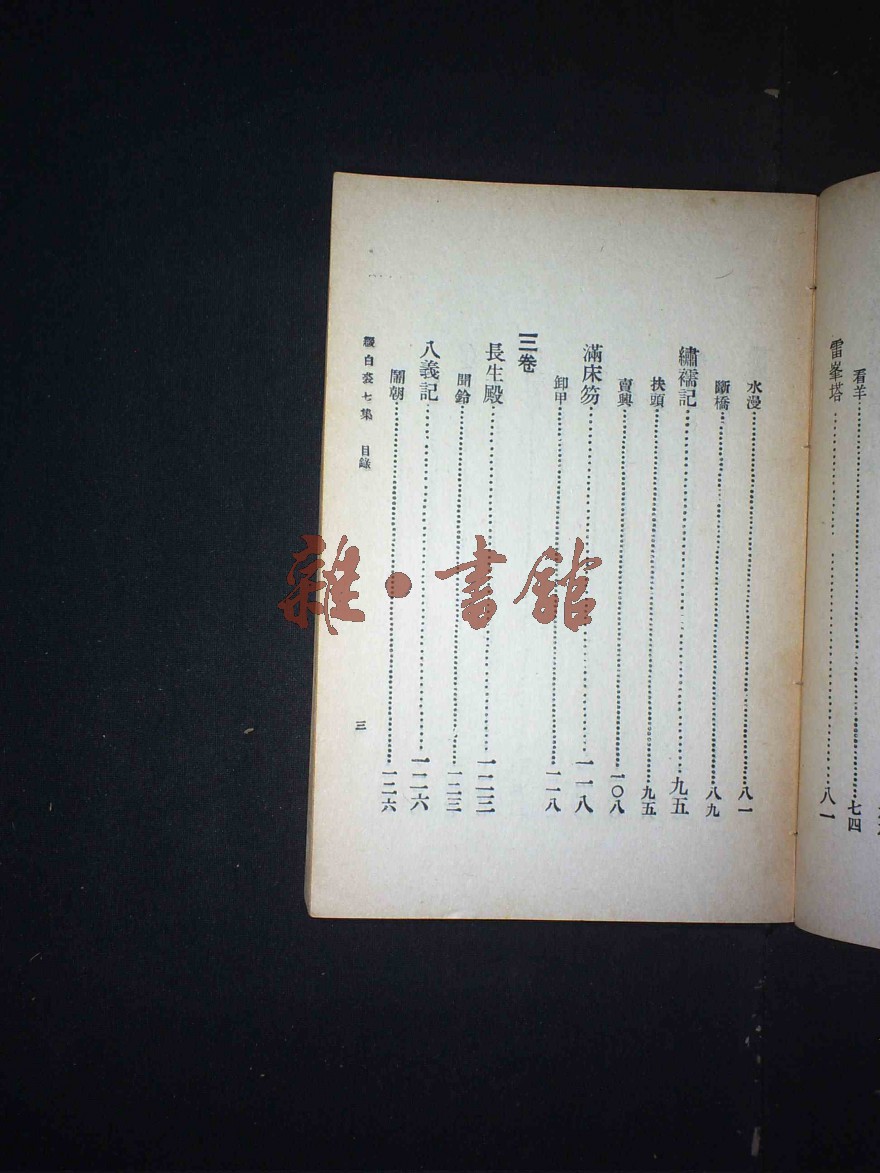 看羊……七四
雷峯塔……八一
水漫……八一
斷橋……八九
繡襦記……九五
扶頭……九五
賣興……一〇八
滿床笏……一一八
卸甲……一一八
三卷
長生殿……一二三
聞鈴……一二三
八義記……一二六
鬧朝……一二六
綴白裘七集 目錄 三
雜·書館